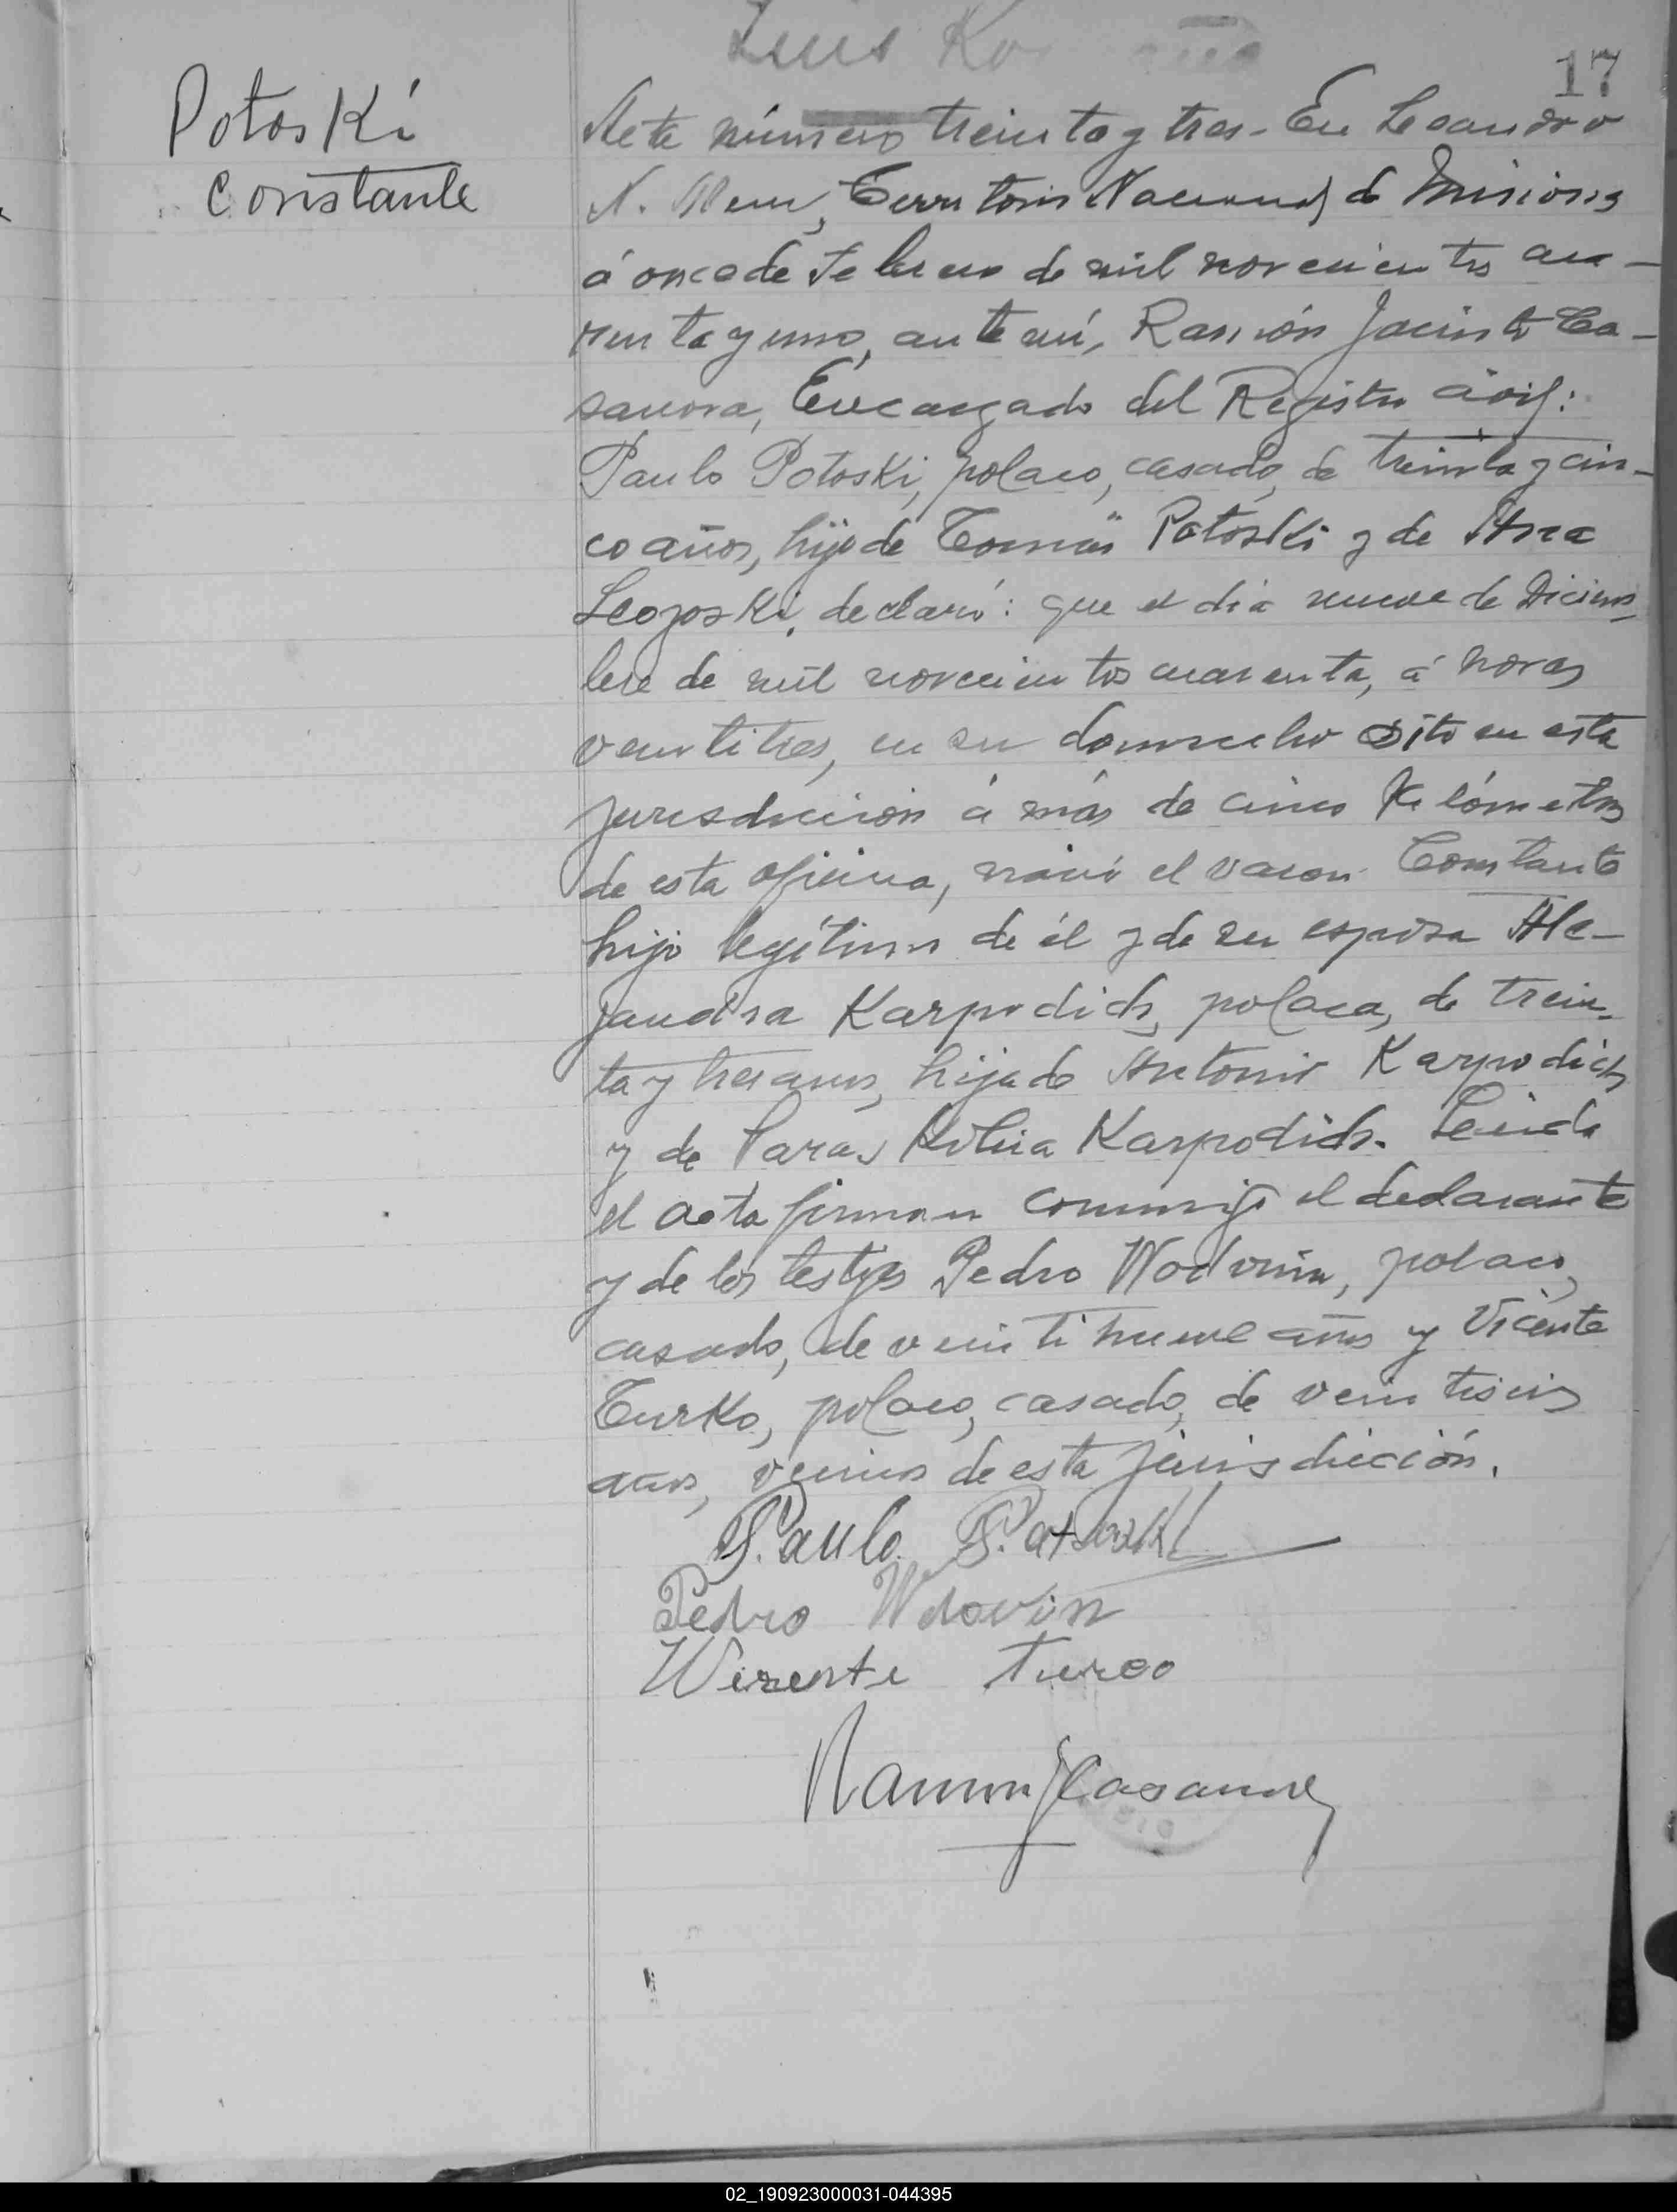 Luis Ko
17
Potoski
Constante
Acta número treinta y tres - En Leandro
N. Alem, Territorio Nacional de Misiones
á once de Febrero de mil novecientos cua-
renta y uno, ante mí, Ramón Jacinto Ca-
sanova, Encargado del Registro Civil:
Paulo Potoski, polaco, casado, de treinta y cin-
co años, hijo de Tomás Potoski y de Ana
declaró: que el día nueve de Diciem-
bre de mil novecientos cuarenta, á horas
veintitres, en su domicilio sito en esta
jurisdicción á más de cinco Kilómetros
de esta oficina, nació el varon Constante
hijo legítimo de él y de su esposa Ale-
jandra Karpodich, polaca, de trein-
ta y tres años, hija de Antonio Karpodich
y de Karpodich. Leida
el acta firman conmigo el declarante
y de los testigos Pedro polaco,
casado, de veintinueve años y Vicente
Turko, polaco, casado, de veintiseis
años, vecinos de esta jurisdicción.
Paulo Potoski
Pedro Wdovin
Wizente Turco
Ramon J Casanova
02_190923000031-044395